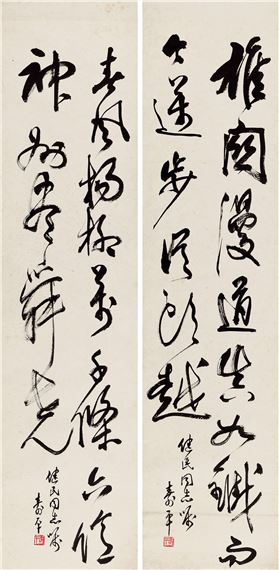 雄関漫道真如鐵而
今邁步從頭越
健民同志嘱
壽平
春風楊柳萬千條六億
神州盡舜堯
健民同志嘱
壽平